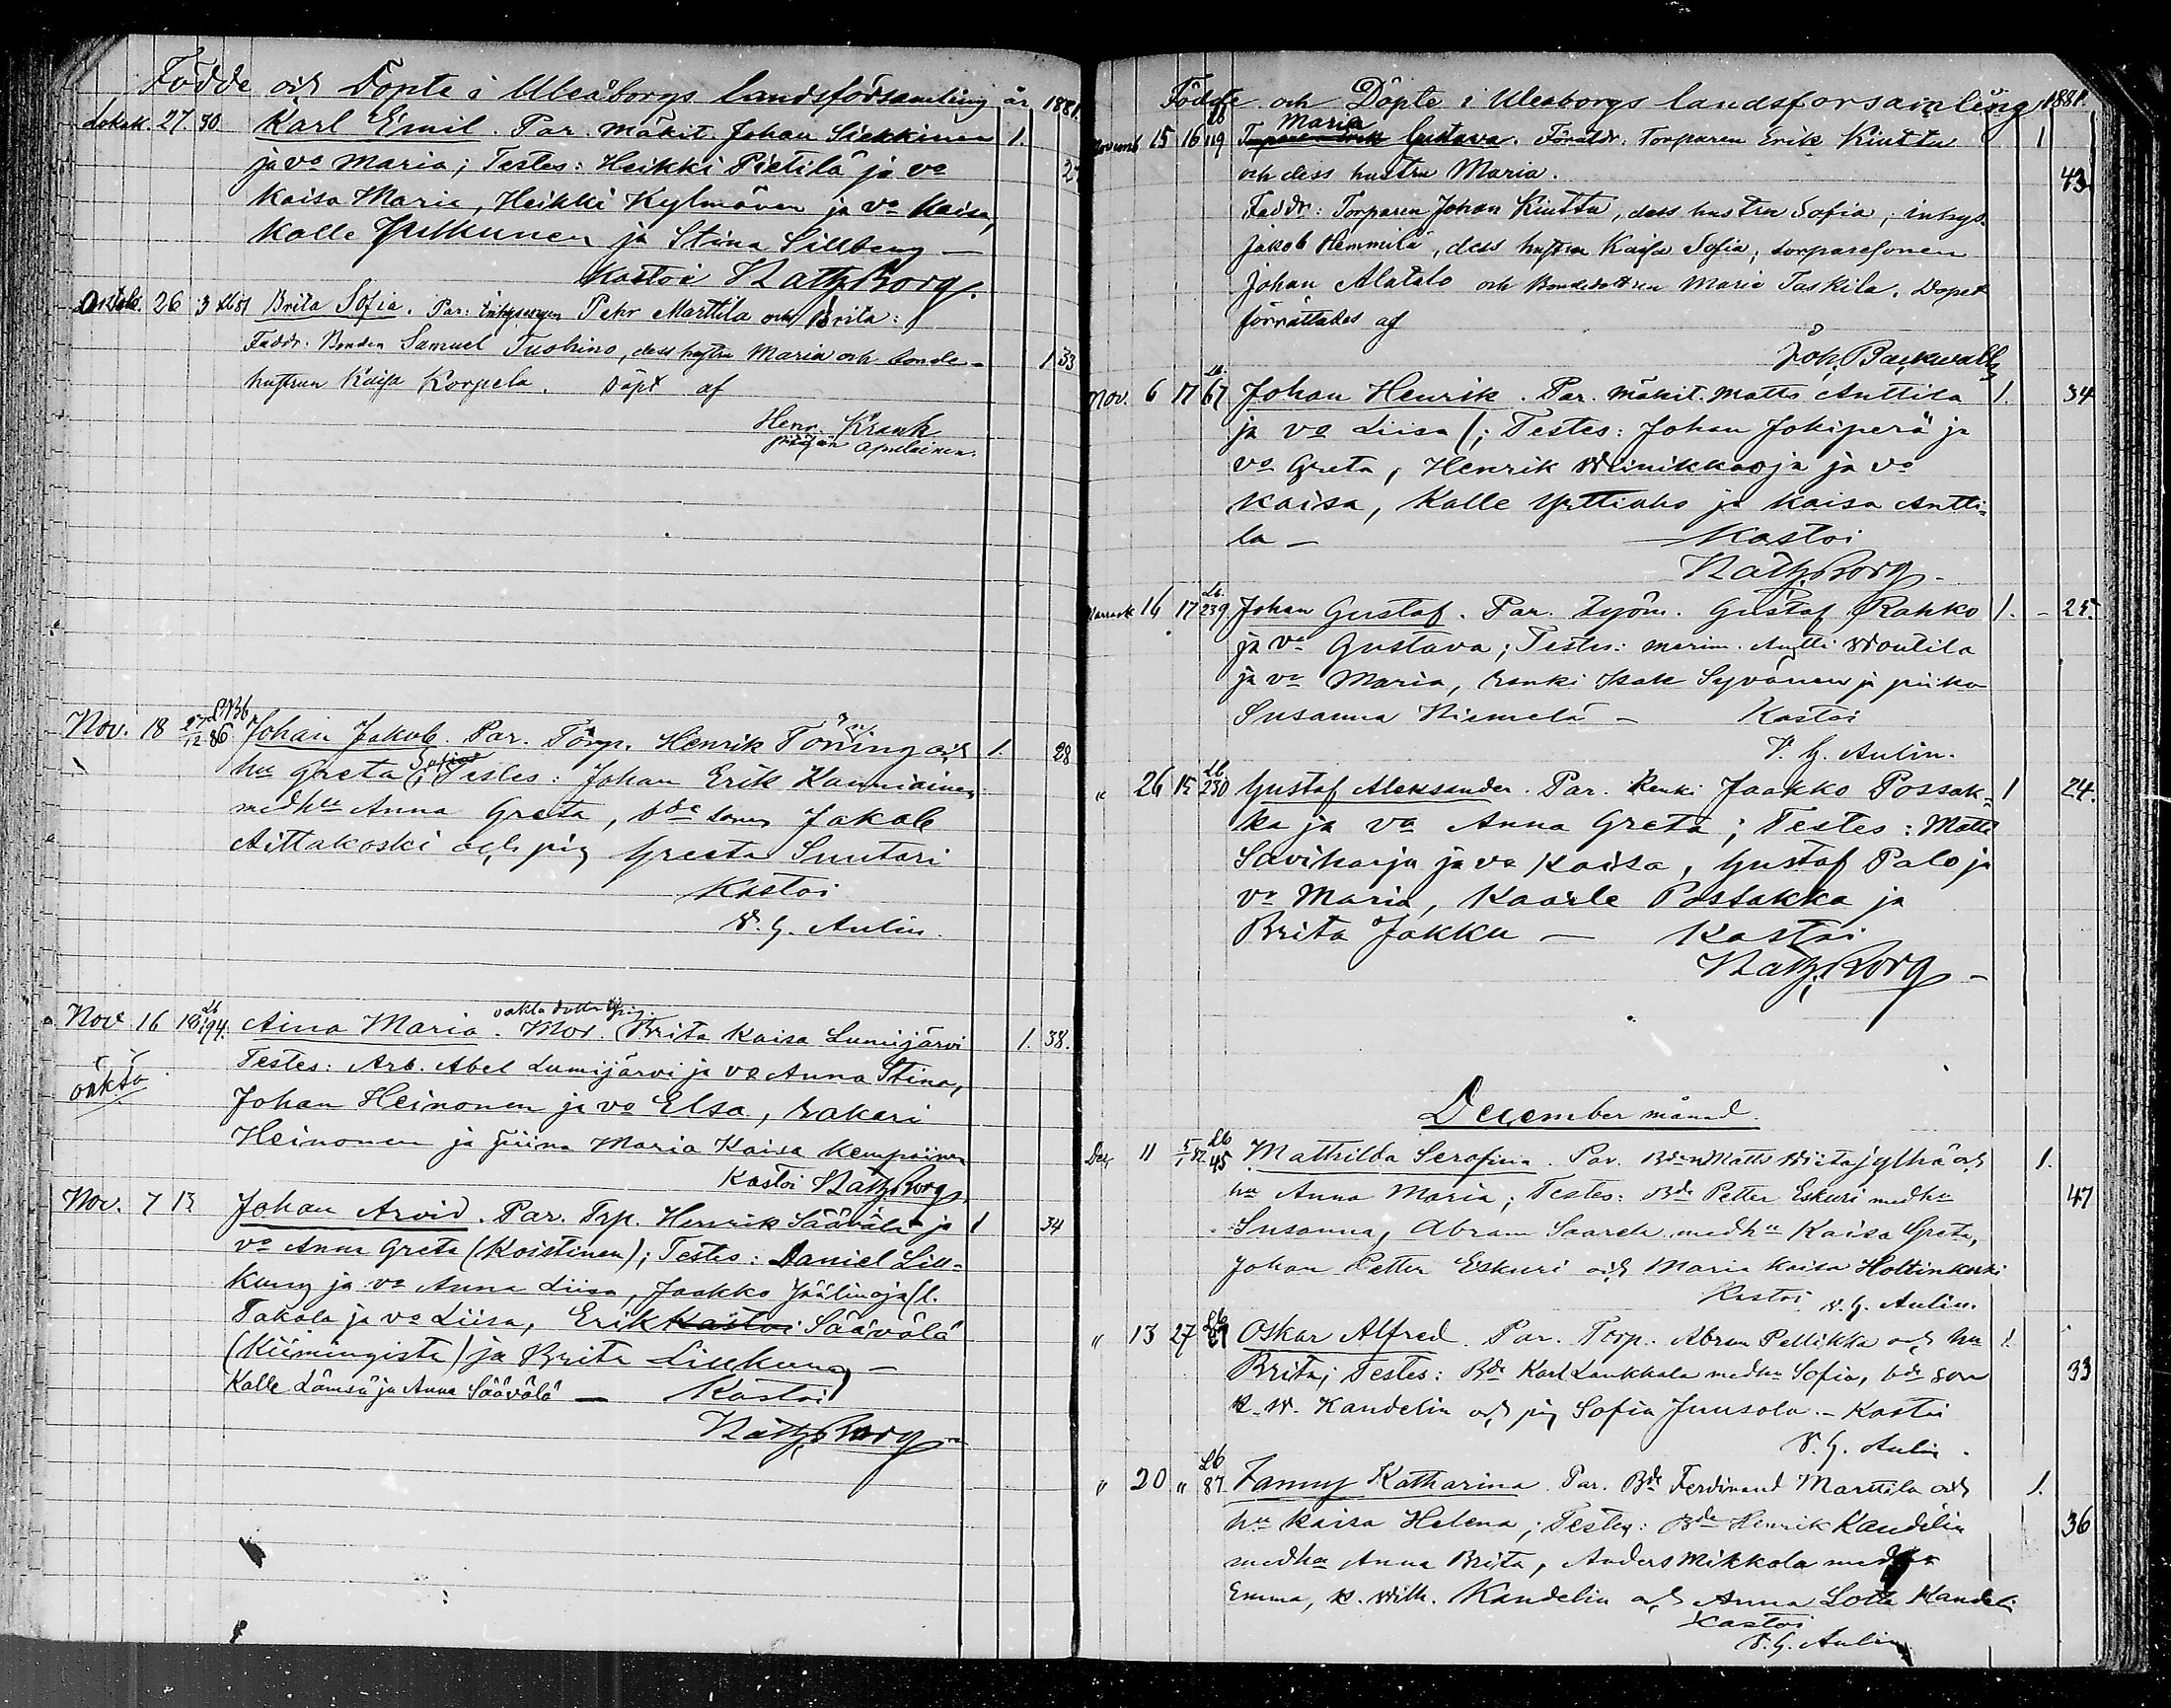 Födde och Döpte i Uleåborgs landsförsamling år 1881.
Lokak. 27 30 Karl Emil. Par. mäkit. Johan Siekkinen 1.
ja vo Maria; Testes: Heikki Pietilä ja vo
Kaisa Maria, Heikki Kylmänen ja vo Kaisa,
Kalle Pulkkunen ja Stina Sillberg —
Kastoi Natz Borg.
Lokak. 26 3 Brita Sofia. Par: Inhysingen Pehr Marttila och Brita:
Faddr. Bonden Samuel Tuohino, dess hustru Maria och bonde- 1 33
hustrun Kaisa Korpela. Döpt af
Henr. Krank
pitäjän apulainen.
Nov. 18 27/12 86 Johan Jakob. Par. Torp. Henrik Törning och 1. 28
hu Greta Sofia; Testes: Johan Erik Kanniainen
med hu Anna Greta, bde sonen Jakob
Aittakoski och pig Greeta Suutari
Kastoi
V. G. Aulin.
Nov 16 18 Lb 194. Aina Maria. oäkta dotter Mor. Brita Kaisa Lumijärvi 1. 38.
oäkta Testes: Arb. Abel Lumijärvi ja vo Anna Stina,
Johan Heinonen ja vo Elsa, Sakari
Heinonen ja Maria Kaisa Kempainen
Kastoi Natz Borg.
Nov. 7 13 Johan Arvid. Par. Trp. Henrik Säävälä ja 1 34
vo Anna Greta (Koistinen); Testes: Daniel Lill-
kung ja vo Anna Liisa, Jaakko Jäälinoja (l.
Takala ja vo Liisa, Erik Kastoi Säävälä
(Kiimingista) ja Brita Lillkung —
Kalle Lämsä ja Anna Säävälä — Kastoi
Natz Borg
Födde och Döpte i Uleaborgs landsforsamling 1881.
Maria
Novemb 15 16 119 Gustava. Föräldr: Torparen Erik Kiuttu 1
och dess hustru Maria. 43
Faddr: Torparen Johan Kiuttu, dess hustru Sofia; inhys.
Jakob Hemmilä, dess hustru Kaisa Sofia; torparesonen
Johan Alatalo och Bondedottren Maria Taskila. Dopet
förrättades af
Joh. Backwall
Nov. 6 17 Lb. 67 Johan Henrik. Par. mäkit. Matts Anttila 1. 34
ja vo Liisa; Testes: Johan Jokiperä ja
vo Greta, Henrik Weinikkaoja ja vo
Kaisa, Kalle Yrttiaho ja Kaisa Antti-
la — Kastoi
Natz Borg.
Marrask 16 17 Lb. 239. Johan Gustaf. Par. työm. Gustaf Rahko 1. - 25.
ja vo Gustava; Testes: merim. Antti Woutila
ja vo Maria, renki Isak Syvänen ja piika
Susanna Niemelä — Kastoi
V. G. Aulin.
" 26 15 Lb 230 Gustaf Aleksander. Par. Renki Jaakko Possak- 1 24.
ka ja vo Anna Greta; Testes: Matti
Saviharju ja vo Kaisa, Gustaf Palo ja
vo Maria, Kaarle Possakka ja
Brita Jakku — Kastoi
Natz Borg —
December månad.
Dec 11 5/1 82 Lb 45 Mathilda Serafina. Par. Bden Matts Wiitajylhä och 1.
hu Anna Maria; Testes: Bde Petter Eskuri med hu 47
Susanna, Abram Saarela med hu Kaisa Greta,
Johan Petter Eskuri och Maria Kaisa Holtinkoski
Kastoi V. G. Aulin.
" 13 27 Lb Oskar Alfred. Par. Torp. Abram Pellikka och hu 1.
Brita; Testes: Bde Karl Laukkala med hu Sofia, bde son 33
K. W. Kandelin och pig Sofia Juusola. — Kastoi
V. G. Aulin.
" 20 " Lb 87 Fanny Katharina. Par. Bde Ferdinand Marttila och 1.
hu Kaisa Helena; Testes: Bde Henrik Kandelin 36
med hu Anna Brita, Anders Mikkola med hu
Emma, K. Wilh. Kandelin och Anna Lotta Kandeli
Kastoi
V. G. Aulin